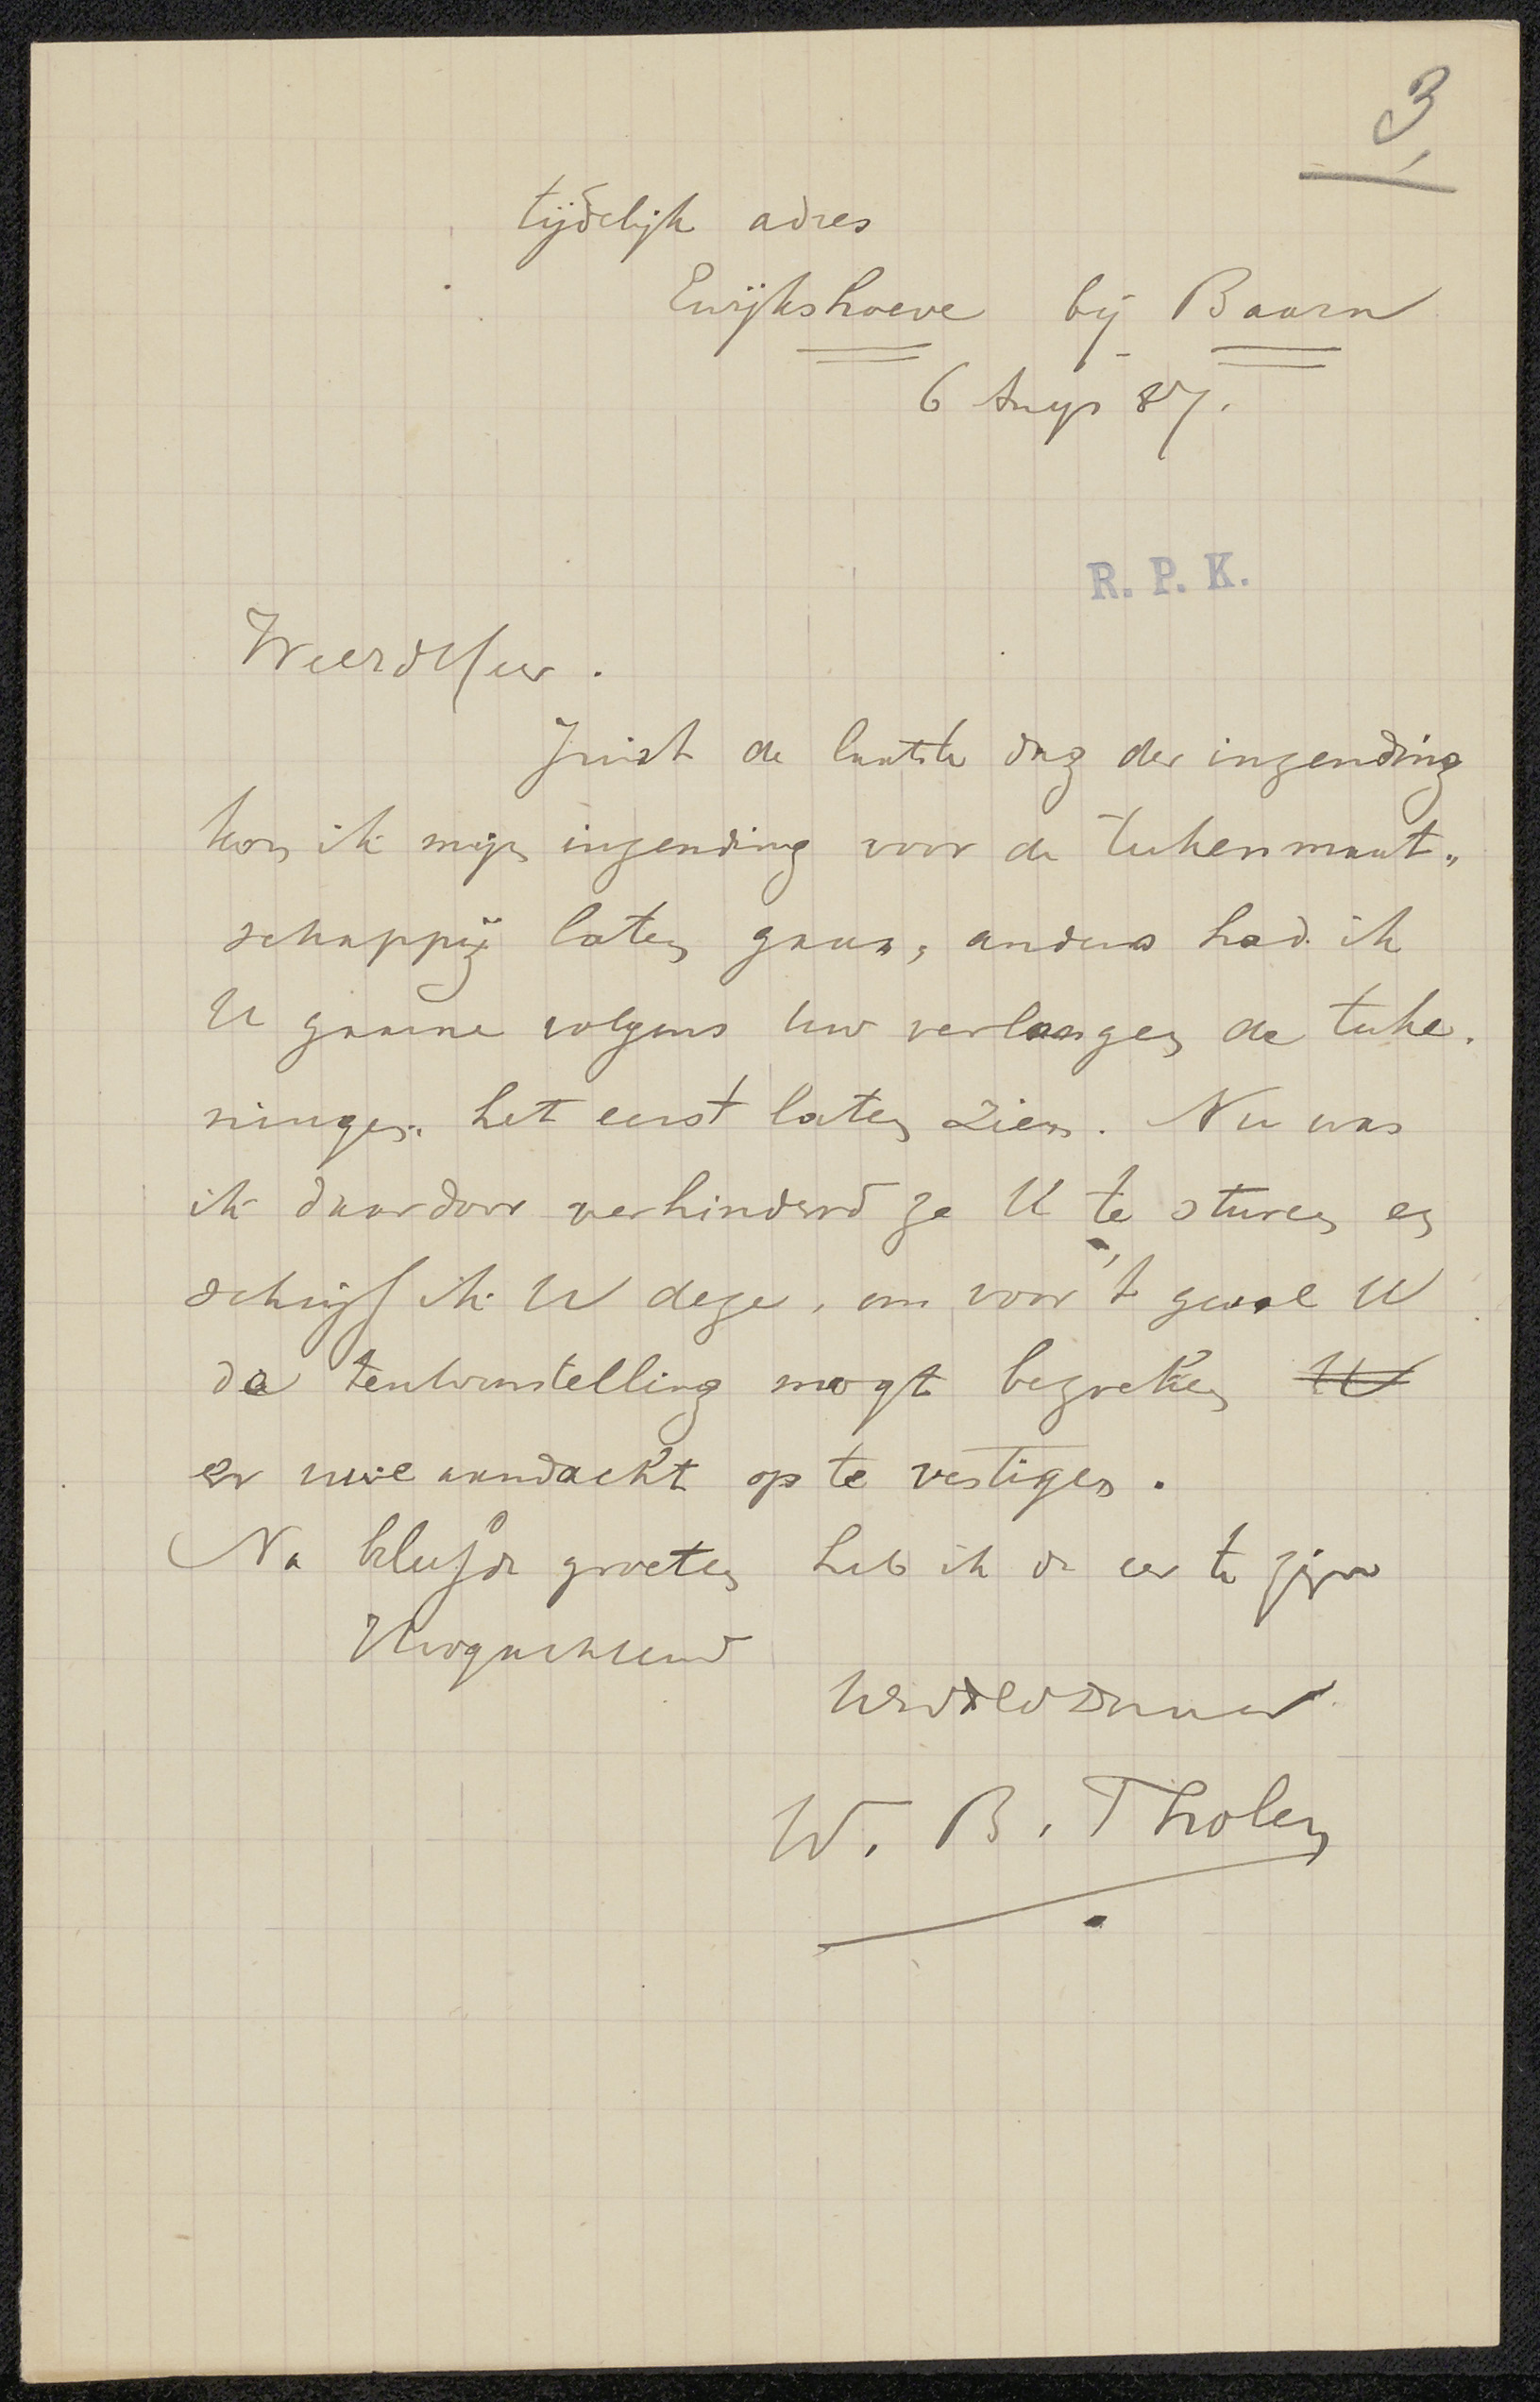 3
tijdelijk adres
Ewijkshoeve bij Baarn
6 Aug 87.
R. P. K.
Weerde Heer.
Juist de laatste dag der inzending
kon ik mijn inzending voor de teekenmaat„
schappij laten gaan, anders had ik
U gaarne volgens Uw verlangen de teeke„
ningen het eerst laten zien. Nu was
ik daardoor verhinderd ze U te sturen en
schrijf ik U deze, om voor 't geval U
de tentoonstelling mogt bezoeken U
er uwe aandacht op te vestigen.
Na beleefde groeten heb ik de eer te zijn
Hoogachtend
W. B. Tholen